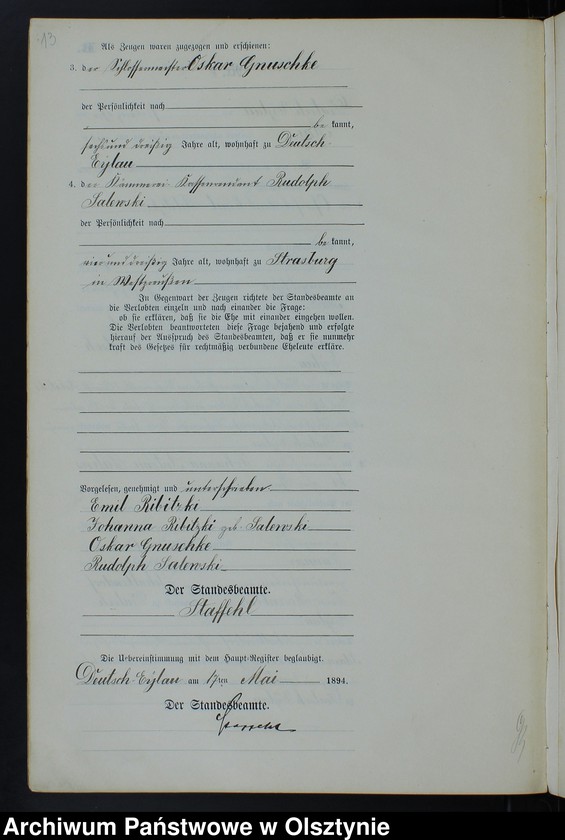 13
Als Zeugen waren zugezogen und erschienen:
3. der Schlossermeister Oskar Gnuschke
der Persönlichkeit nach
be kannt,
sechsunddreißig Jahre alt, wohnhaft zu Deutsch-
Eylau
4. der Kämmerei-Kassenrendant Rudolph
Salewski
der Persönlichkeit nach
be kannt,
vierunddreißig Jahre alt, wohnhaft zu Strasburg
in Westpreußen
In Gegenwart der Zeugen richtete der Standesbeamte an
die Verlobten einzeln und nach einander die Frage:
ob sie erklären, daß sie die Ehe mit einander eingehen wollen.
Die Verlobten beantworteten diese Frage bejahend und erfolgte
hierauf der Ausspruch des Standesbeamten, daß er sie nunmehr
kraft des Gesetzes für rechtmäßig verbundene Eheleute erkläre.
Vorgelesen, genehmigt und unterschrieben
Emil Ribitzki
Johanna Ribitzki geb. Salewski
Oskar Gnuschke
Rudolph Salewski
Der Standesbeamte.
Staffehl
Die Uebereinstimmung mit dem Haupt-Register beglaubigt.
Deutsch-Eylau am 17ten Mai 1894.
Der Standesbeamte.
Staffehl
Archiwum Państwowe w Olsztynie